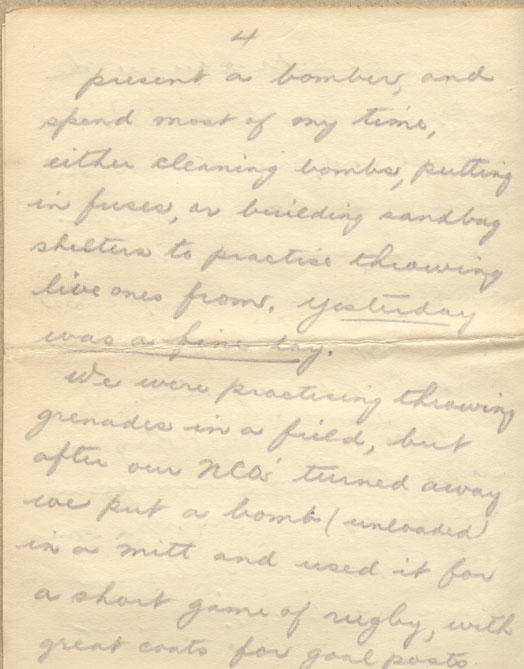 4
present a bomber, and
spend most of my time,
either cleaning bombs, putting
in fuses, or building sandbag
shelters to practise throwing
live ones from. Yesterday
was a fine day.
We were practising throwing
grenades in a field, but
after our NCOs' turned away
we put a bomb (unloaded)
in a mitt and used it for
a short game of rugby, with
great coats for goal posts